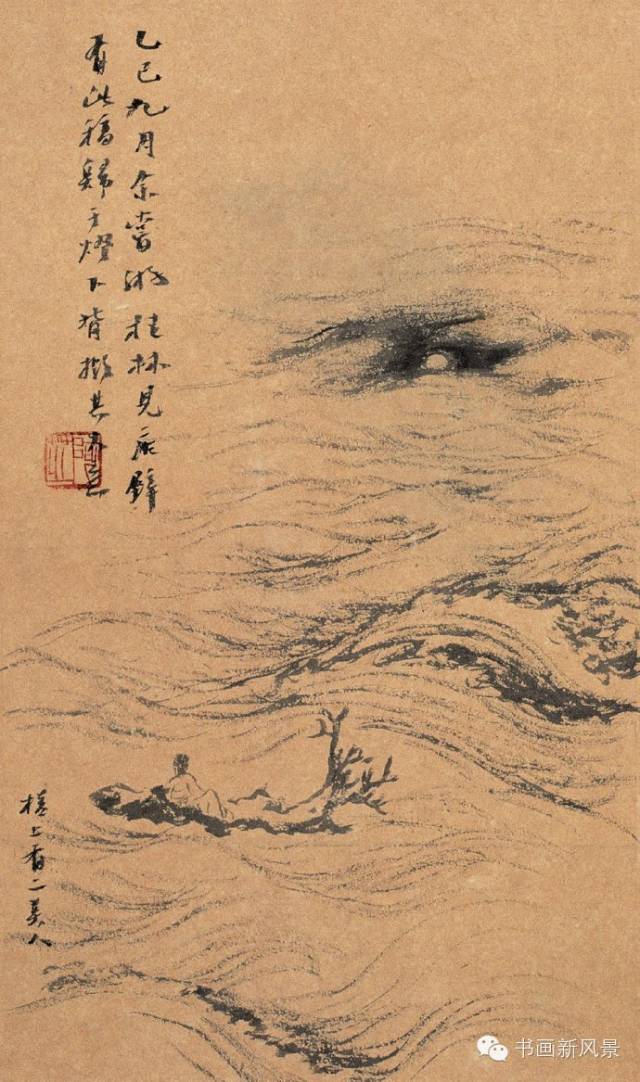 乙巳九月余嘗游桂林見壁
有此稿歸于燈下背擬其
槎上有二美人
书画新风景